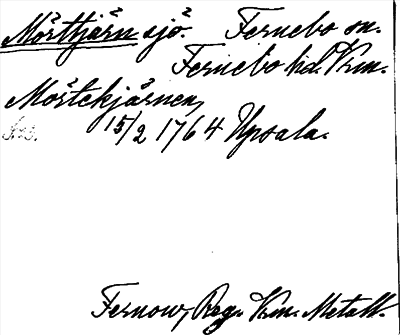 Mörttjärn sjö. Fernebo sn.
Fernebo hd. Vrm.
Mörtekjärnen,
15/2 1764 Upsala.
Fernow, Reg. Vrm. Metall.